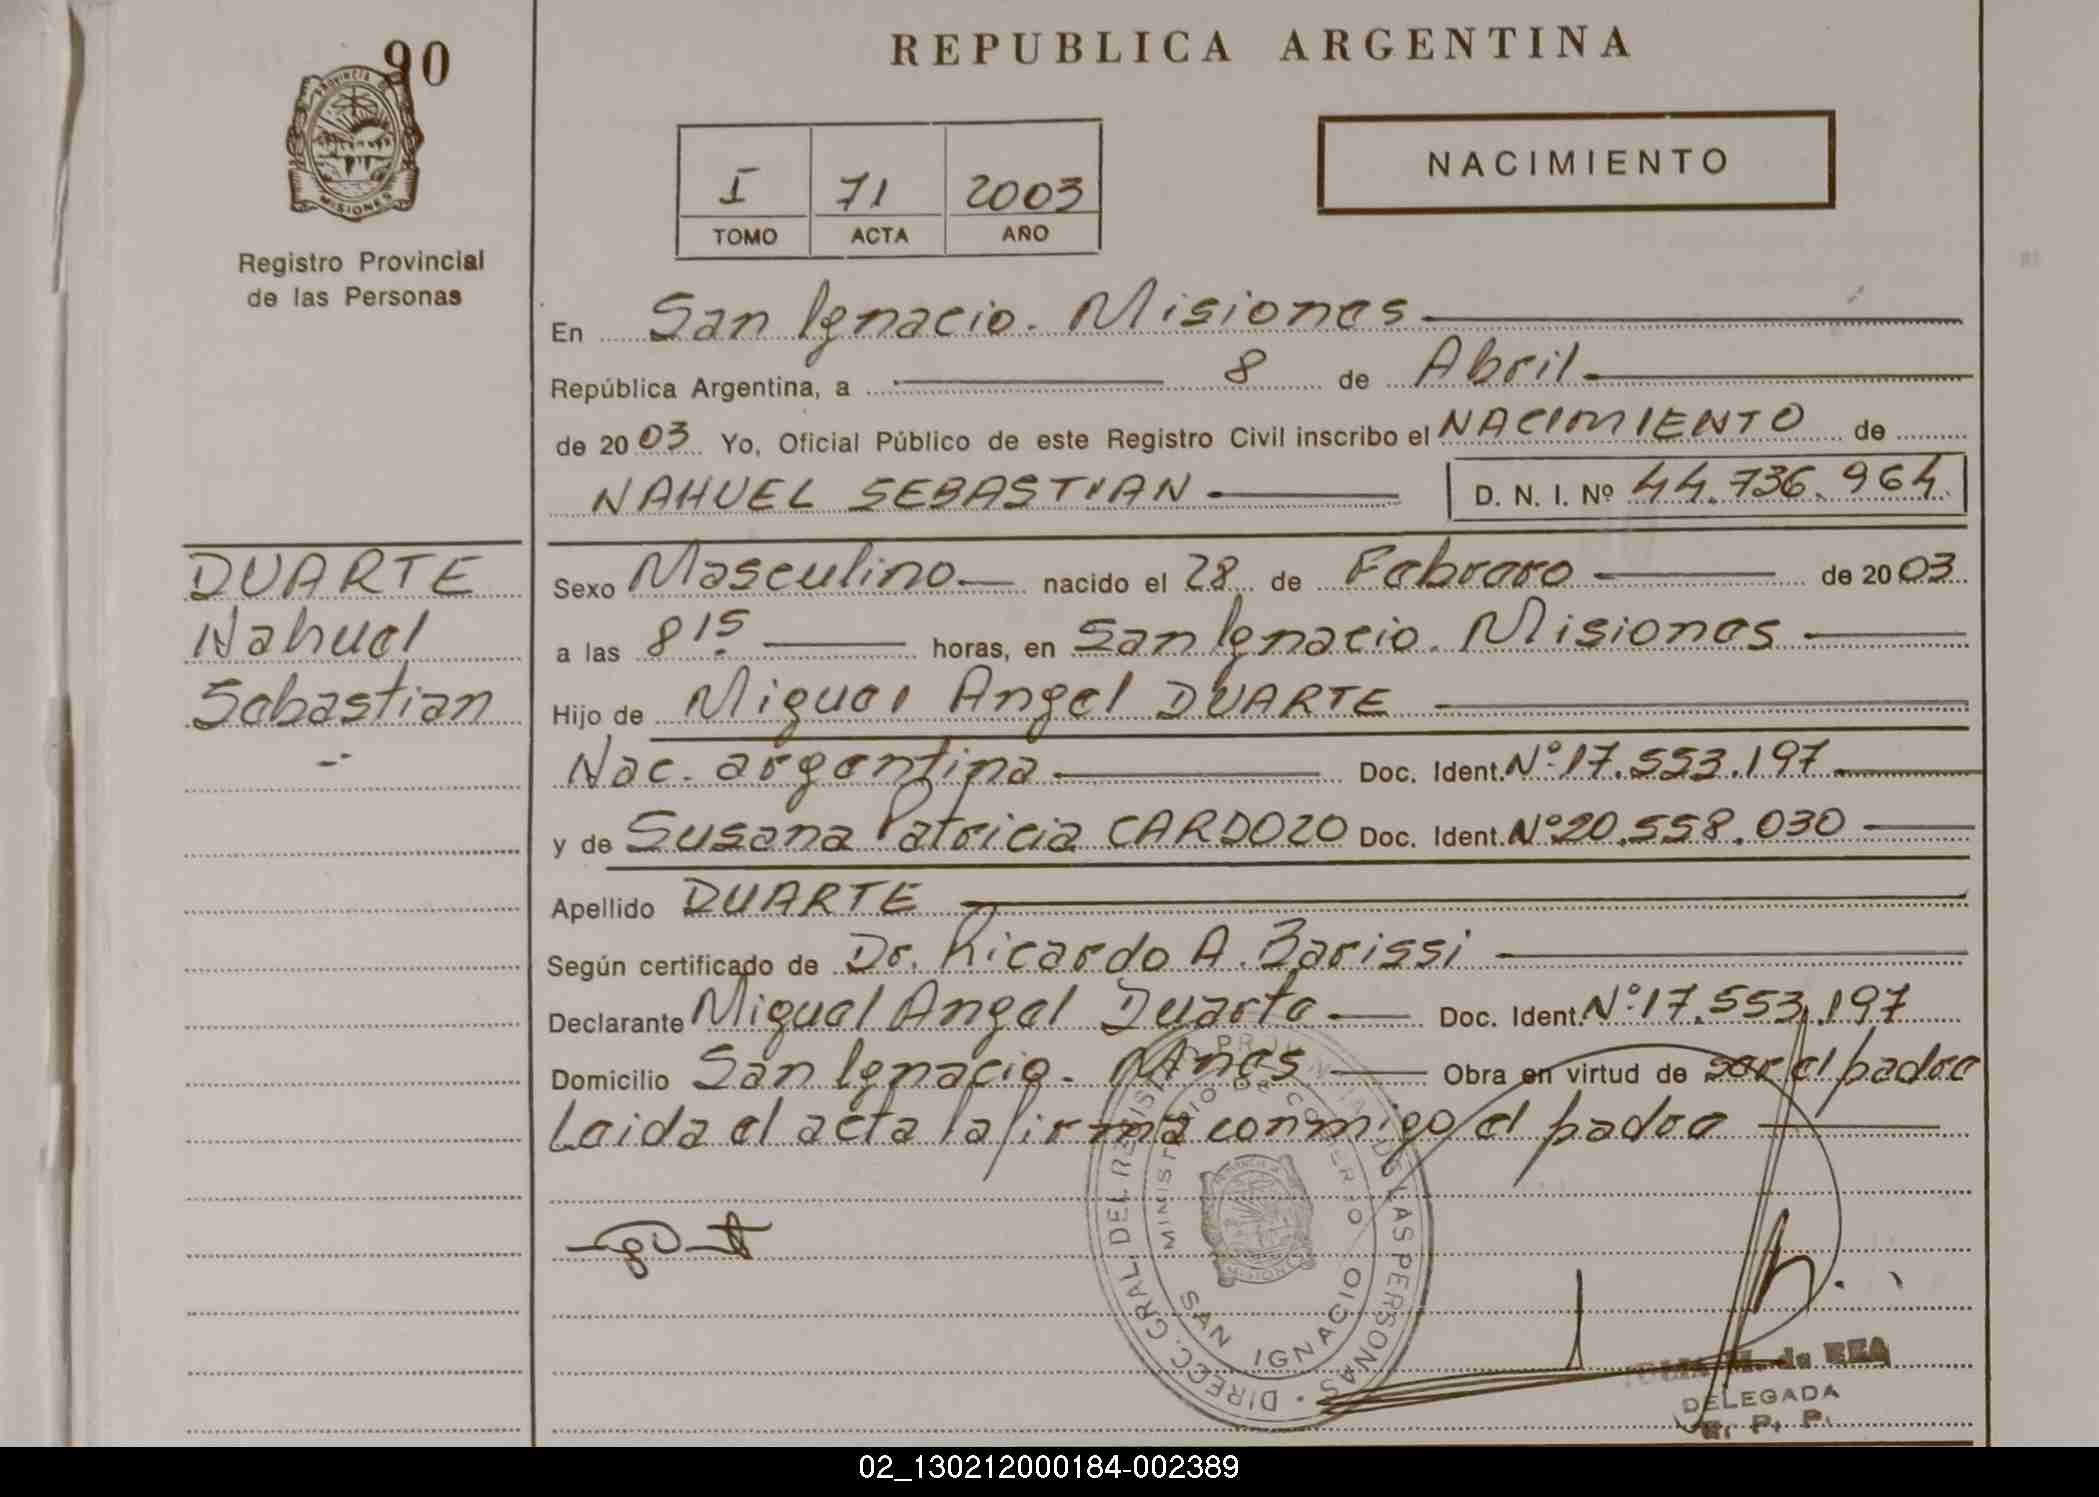 90
REPUBLICA ARGENTINA
PROVINCIA
MISIONES
Registro Provincial
de las Personas
I 71 2003
TOMO ACTA AÑO
NACIMIENTO
En San Ignacio. Misiones
República Argentina, a 8 de Abril
de 2003 Yo, Oficial Público de este Registro Civil inscribo el NACIMIENTO de
NAHUEL SEBASTIAN D. N. I. Nº 44.736.964
DUARTE
Nahuel
Sebastian
Sexo Masculino nacido el 28 de Febrero de 2003
a las 8 15 horas, en San Ignacio. Misiones
Hijo de Miguel Angel DUARTE
Nac. argentina Doc. Ident. Nº 17.553.197
y de Susana Patricia CARDOZO Doc. Ident. Nº 20.558.030
Apellido DUARTE
Según certificado de Dr. Ricardo A. Barissi
Declarante Miguel Angel Duarte Doc. Ident. Nº 17.553.197
Domicilio San Ignacio. Mnes Obra en virtud de ser el padre
Leida el acta la firma conmigo el padre
DIRECC. GRAL. DEL REGISTRO PROVINCIAL DE LAS PERSONAS
MINISTERIO DE GOBIERNO
SAN IGNACIO
MISIONES
DELEGADA
R. P. P.
02_130212000184-002389